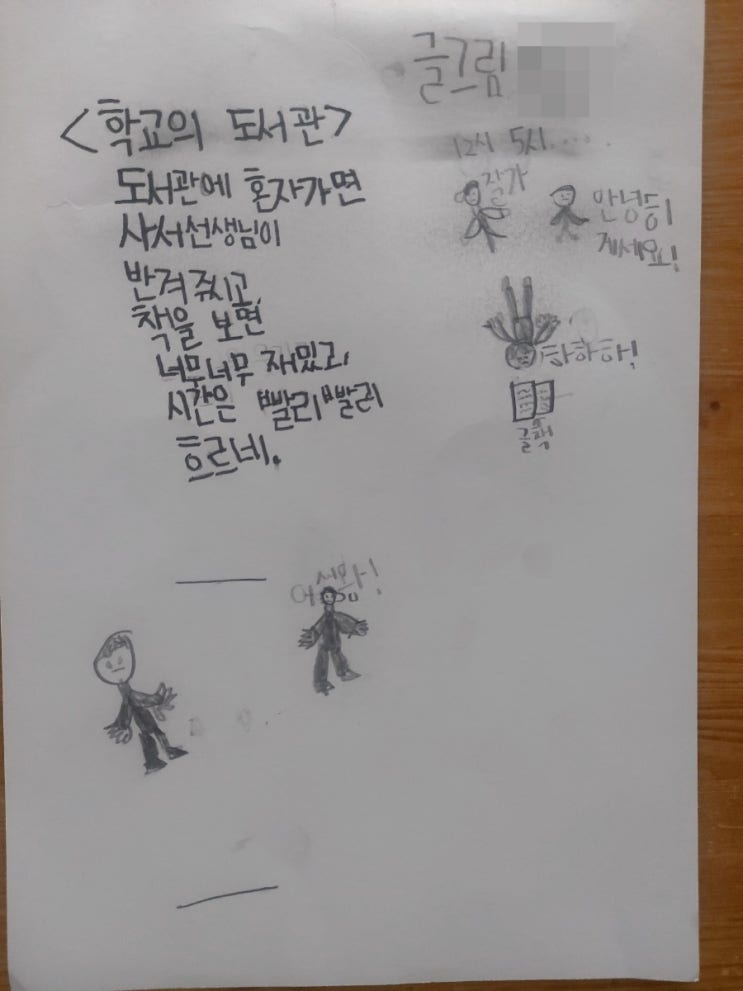 글그림
<학교의 도서관>
도서관에 혼자가면
사서선생님이
반겨주시고,
책을 보면
너무너무 재밌고,
시간은 빨리빨리
흐르네.
12시 5시.....
잘가
안녕히
계세요!
하하하!
글책
어서와!